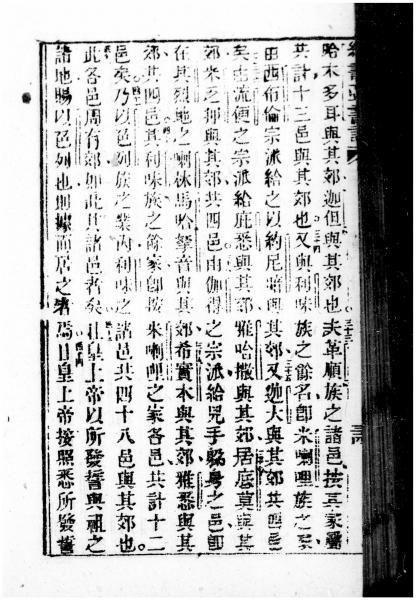 哈末多耳與其郊迦但與其郊也夫革順族之諸邑按其家屬
共計十三邑與其郊也又與利味族之餘名卽米喇哩族之家
由西佈倫宗派給之以約尼暗與其郊又迦大與其郊共四邑
矣由流便之宗派給庇悉與其郊雅哈撒與其郊居底莫與其
郊米乏押與其郊共四邑由伽得之宗派給兇手躲身之邑卽
在其烈地之喇末馬哈拏音與其郊希實本與其郊雅悉與其
郊共四邑其利味族之餘家卽按米喇哩之家各邑共計十二
邑矣乃以色列族之業內利味之諸邑共四十八邑與其郊也
此各邑周有郊如此其諸邑者矣且皇上帝以所發誓與祖之
諸地賜以色列也則據而居之者焉且皇上帝按照悉所發誓